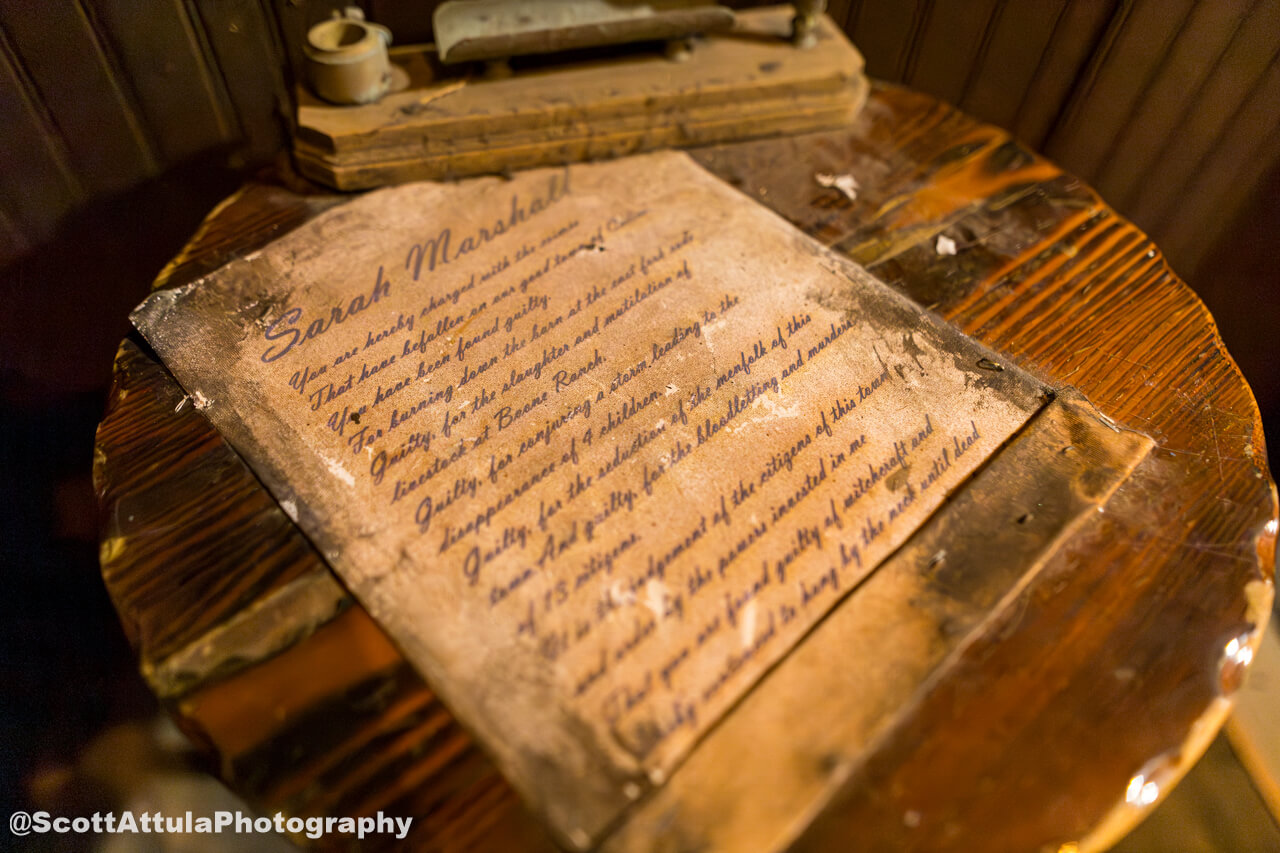 Sarah Marshall
You are hereby charged with the crimes
That have befallen on our good town of
You have been found guilty.
For burning down the barn at the east fork
Guilty, for the slaughter and mutilation of
livestock at Boone Ranch.
Guilty, for conjuring a storm leading to the
disappearance of 4 children.
Guilty, for the seduction of the menfolk of this
town. And guilty, for the bloodletting and murders
of 13 citizens.
It is the judgement of the citizens of this town
and under by the powers invested in me
That you are found guilty of witchcraft and
sentenced to hang by the neck until dead
@ScottAttulaPhotography